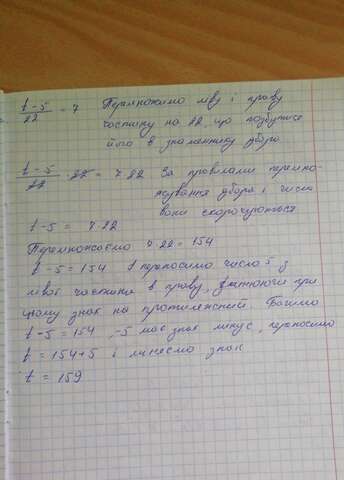 t-5/22 = 7 Перемножимо ліву і праву
частину на 22, що позбутися
його в знаменнику дробі
t-5/22 · 22 = 7·22 За правилами перемно-
жування дробів і числа
вони скорочуються
t-5 = 7·22
Перемножаємо 7·22 = 154
t-5 = 154 і переносимо число 5 з
лівої частини в праву, змінюючи при
цьому знак на протилежний. Бачимо
t-5 = 154, -5 має знак мінус, переносимо
t = 154+5 і міняємо знак
t = 159